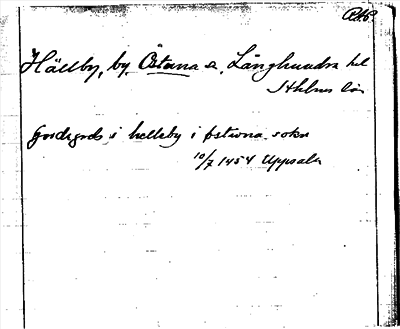 Hällby, by Östuna sn. Långhundra hd
Sthlms län
i helleby i østwna sokn
10/7 1454 Uppsala